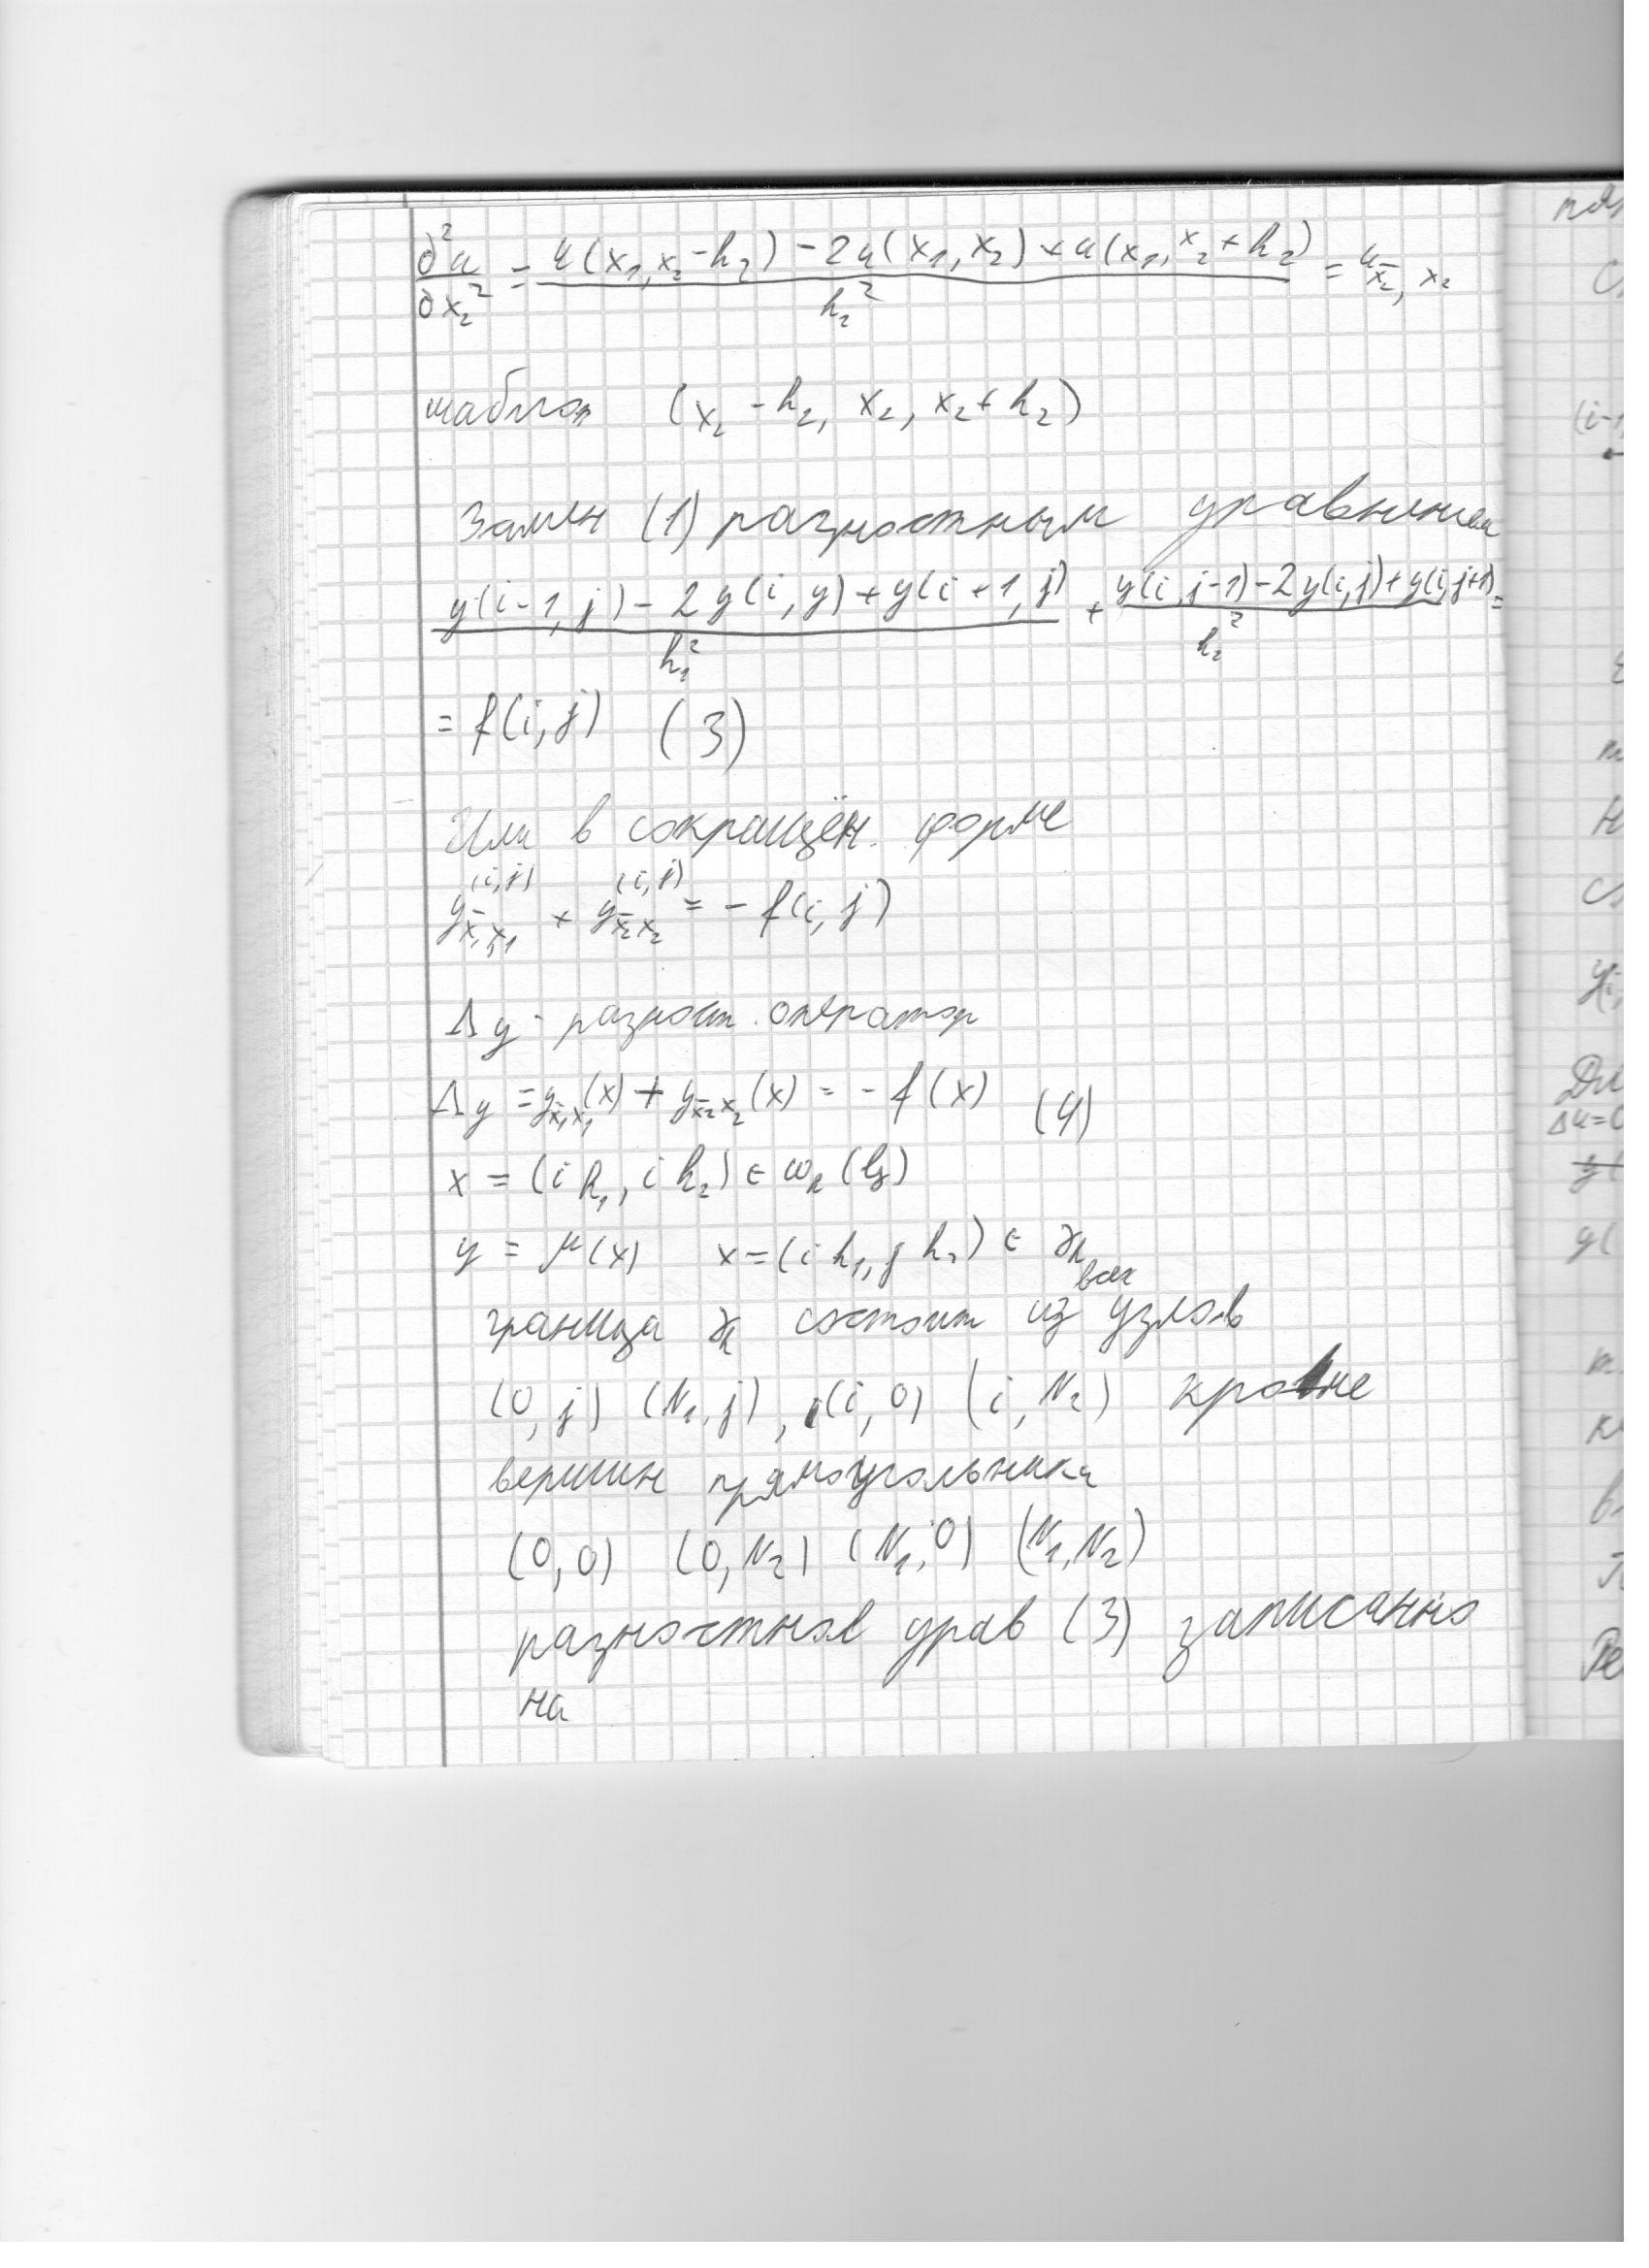 ∂²u/∂x₂² = (u(x₁, x₂ - h₂) - 2u(x₁, x₂) + u(x₁, x₂ + h₂))/h₂² = u_x̄₂, x₂
шаблон (x₂ - h₂, x₂, x₂ + h₂)
Замен (1) разностным уравнением
(y(i-1, j) - 2y(i, y) + y(i+1, j))/h₁² + (y(i, j-1) - 2y(i, j) + y(i, j+1))/h₂² =
= f(i, j) (3)
Или в сокращён. форме
y_x̄₁x₁(i, j) + y_x̄₂x₂(i, j) = - f(i, j)
Δy - разност. оператор
Δy = y_x̄₁x₁(x) + y_x̄₂x₂(x) = - f(x) (4)
x = (i h₁, i h₂) ∈ ω_h
y = μ(x) x = (i h₁, j h₂) ∈ γ_h
всех
граница γ_h состоит из узлов
(0, j) (N₁, j), (i, 0) (i, N₂) кроме
вершин прямоугольника
(0, 0) (0, N₂) (N₁, 0) (N₁, N₂)
разностное урав (3) записанно
на
пят
(i-1,
Δu=0
y(